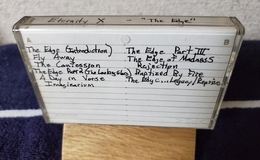 Eternity X - "The Edge"
A
B
The Edge (Introduction)
Fly Away
The Confession
The Edge Part II (The Looking Glass)
A Day in Verse
Imaginarium
The Edge Part III
The Edge of Madness
Rejection
Baptized By Fire
The Edge... Legacy/Reprise